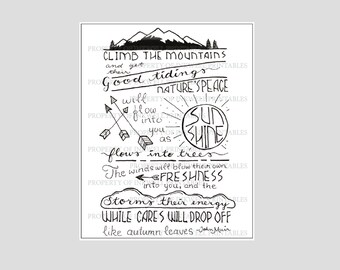 CLIMB THE MOUNTAINS
and get their
Good tidings
NATURE'S PEACE
will flow into you as
SUNSHINE
flows into trees
The winds will blow their own
FRESHNESS
into you, and the
Storms their energy
WHILE CARES WILL DROP OFF
like autumn leaves -John Muir